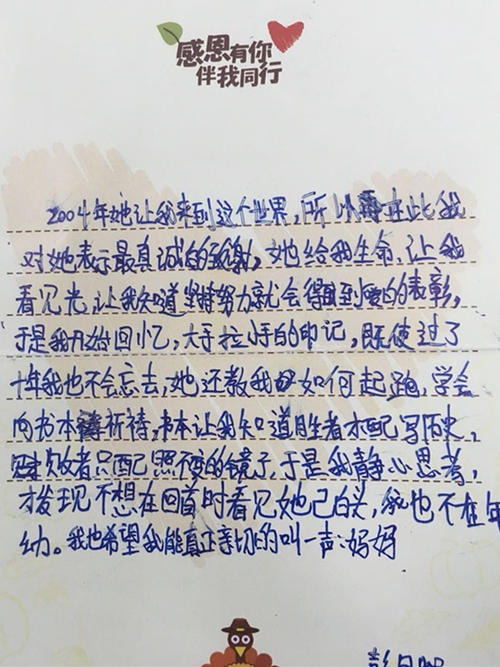 感恩有你
伴我同行
2004年她让我来到这个世界,所以在此我
对她表示最真诚的致谢,她给我生命,让我
看见光,让我知道坚持努力就会得到爱的表彰,
于是我开始回忆,大手拉小手的印记,既使过了
十年我也不会忘去,她还教我如何起跑,学会
向书本祈祷,书本让我知道胜者才配写历史,
败者只配照不变的镜子,于是我静心思考,
才发现不想在回首时看见她已白头,我也不在年
幼。我也希望我能真正亲切的叫一声:妈妈
彭